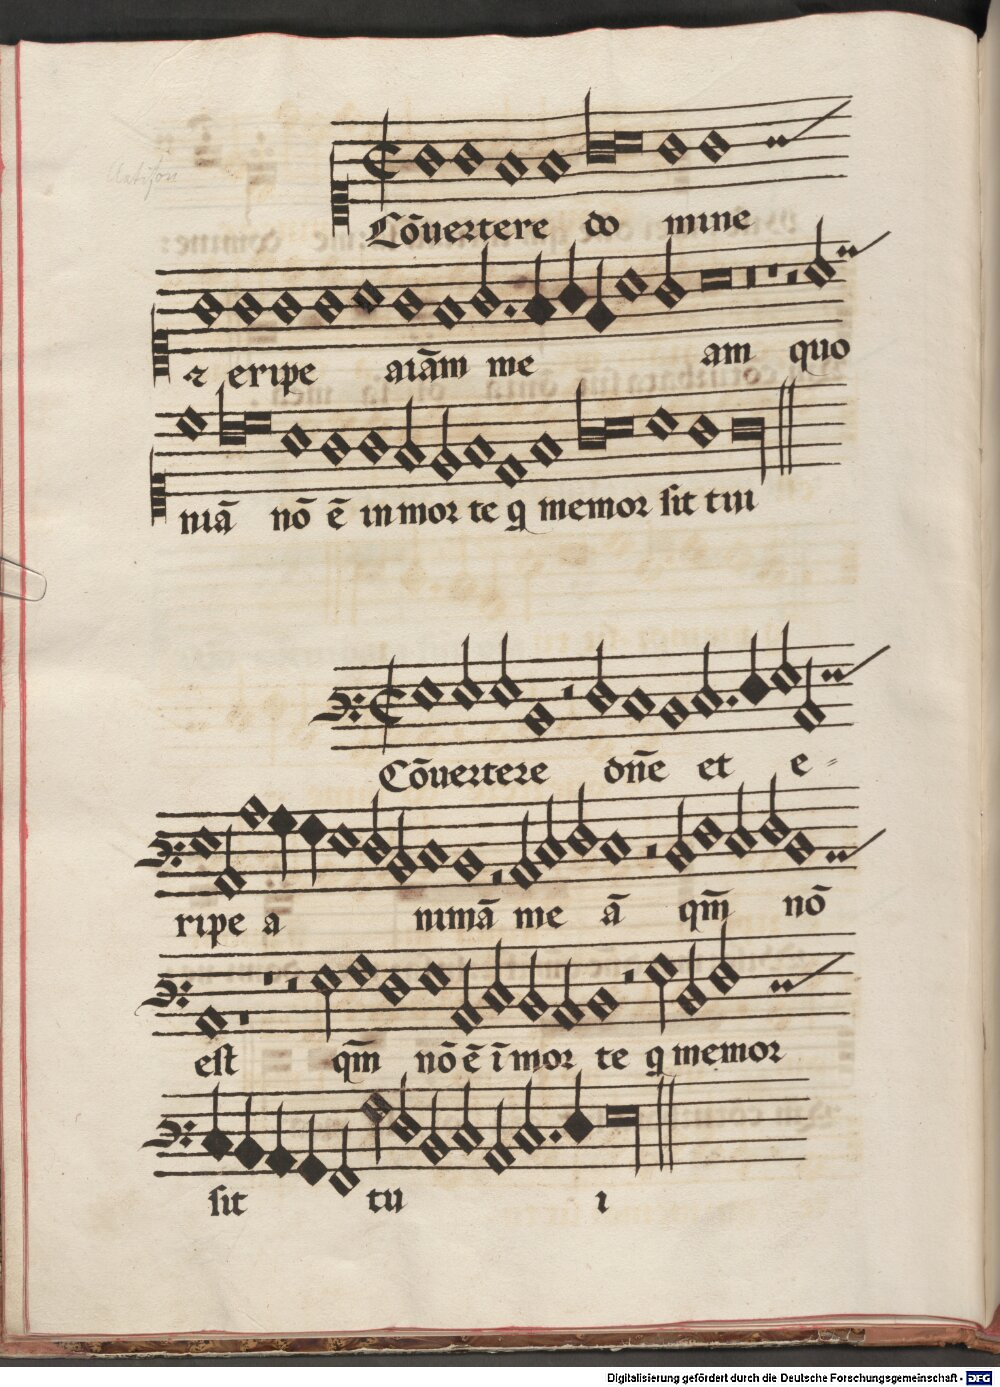 Cõuertere do mine
⁊ eripe aiãm me am quo
niã nõ ẽ in mor te q memor sit tui
Cõuertere dñe et e-
ripe a nimã me ã qm̃ nõ
est qm̃ nõ ẽ ĩ mor te q memor
sit tu i
Digitalisierung gefördert durch die Deutsche Forschungsgemeinschaft - DFG